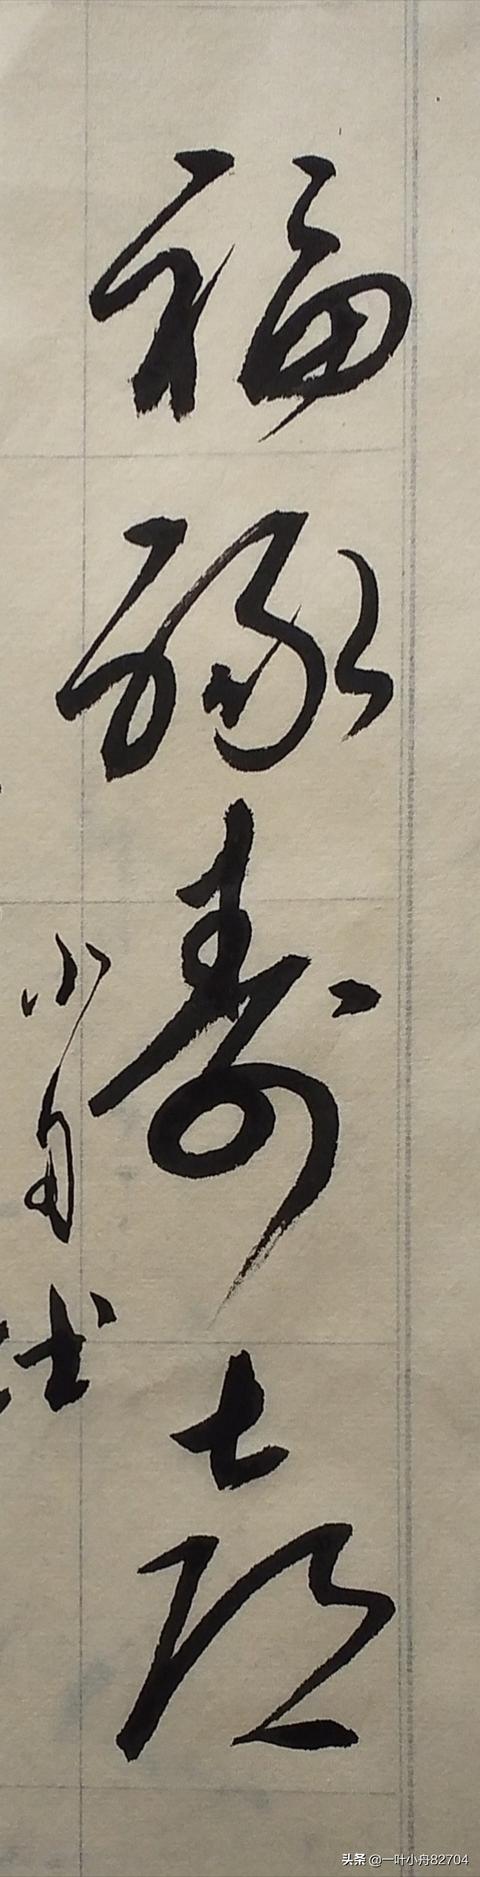 福禄寿喜
小舟书
头条 @一叶小舟82704